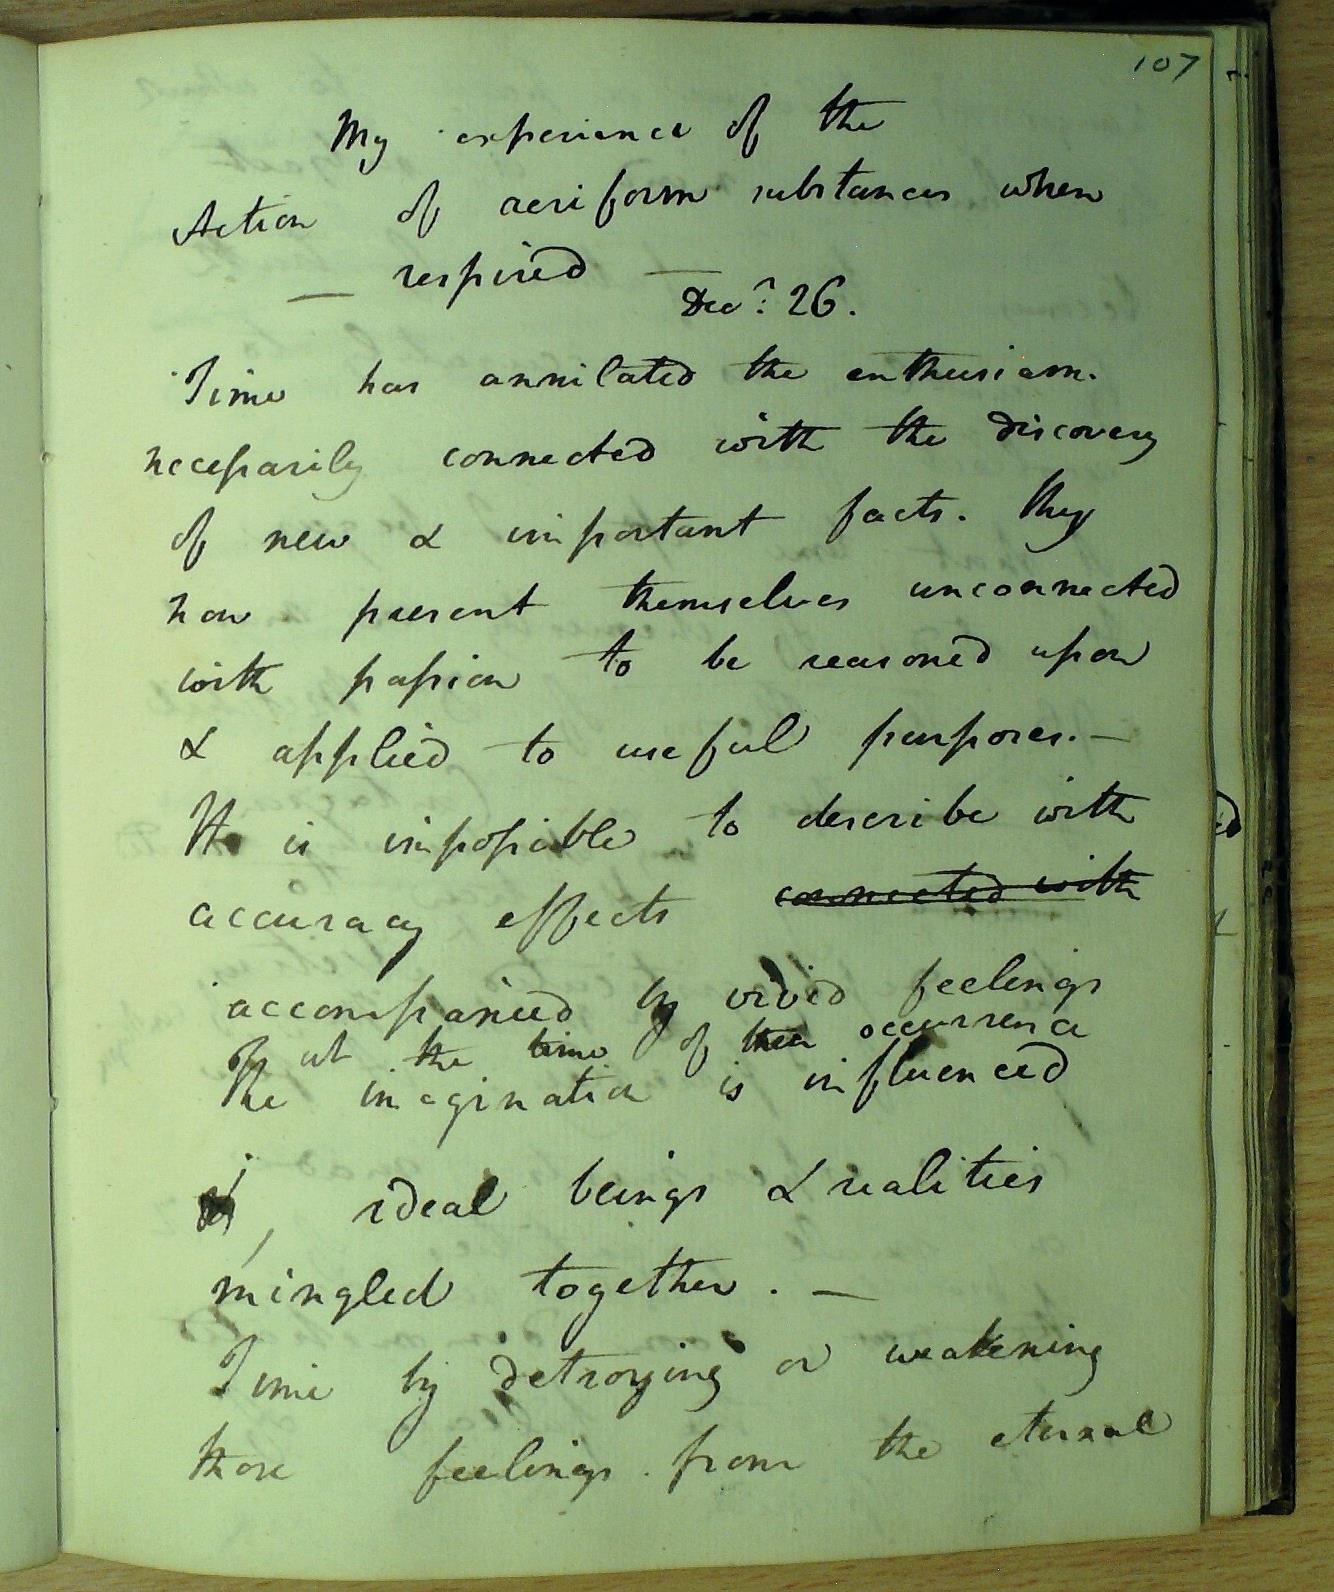 107
My experience of the
Action of aeriform substances when
— respired —
Decr. 26.
Time has annilated the enthusiasm.
necessarily connected with the discovery
of new & important facts. they
now present themselves unconnected
with passion to be reasoned upon
& applied to useful purposes. —
It is impossible to describe with
accuracy effects connected with
accompanied by vivid feelings
If at the time of their occurrence
the imagination is influenced
ideal beings & realities
mingled together. —
Time by detroying or weakening
those feelings from the eternal